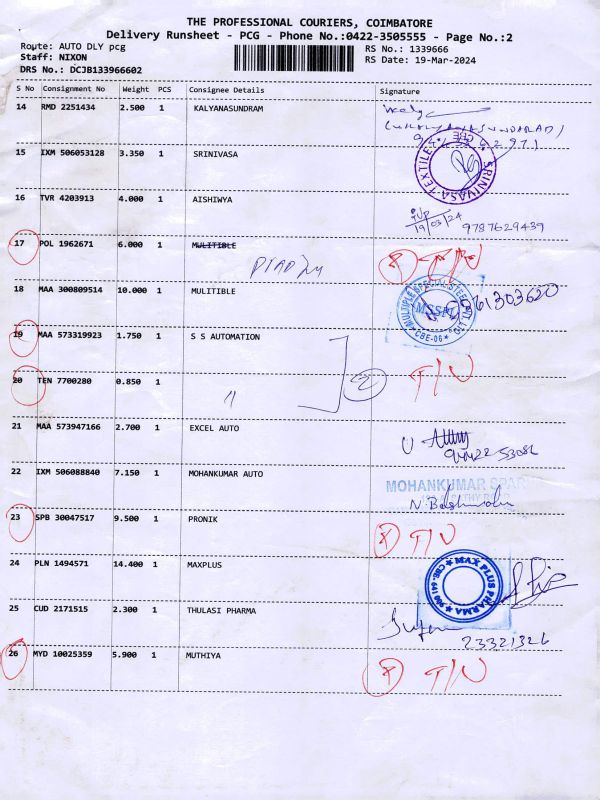 THE PROFESSIONAL COURIERS, COIMBATORE
Delivery Runsheet - PCG - Phone No.:0422-3505555 - Page No.:2
Route: AUTO DLY pcg RS No.: 1339666
Staff: NIXON RS Date: 19-Mar-2024
DRS No.: DCJB133966602
S No Consignment No Weight PCS Consignee Details Signature
14 RMD 2251434 2.500 1 KALYANASUNDRAM
15 IXM 506053128 3.350 1 SRINIVASA
SRINIVASA TEXTILE CBE
16 TVR 4203913 4.000 1 AISHIWYA
19/03/24 9787629439
17 POL 1962671 6.000 1 MULITIBLE
T/N
18 MAA 300809514 10.000 1 MULITIBLE
MSSPL CBE-06
19 MAA 573319923 1.750 1 S S AUTOMATION
2
20 TEN 7700280 0.850 1 "
T/N
21 MAA 573947166 2.700 1 EXCEL AUTO
22 IXM 506088840 7.150 1 MOHANKUMAR AUTO
MOHANKUMAR
23 SPB 30047517 9.500 1 PRONIK
T/N
24 PLN 1494571 14.400 1 MAXPLUS
MAX PLUS PHARMA
25 CUD 2171515 2.300 1 THULASI PHARMA
23321326
26 MYD 10025359 5.900 1 MUTHIYA
T/N